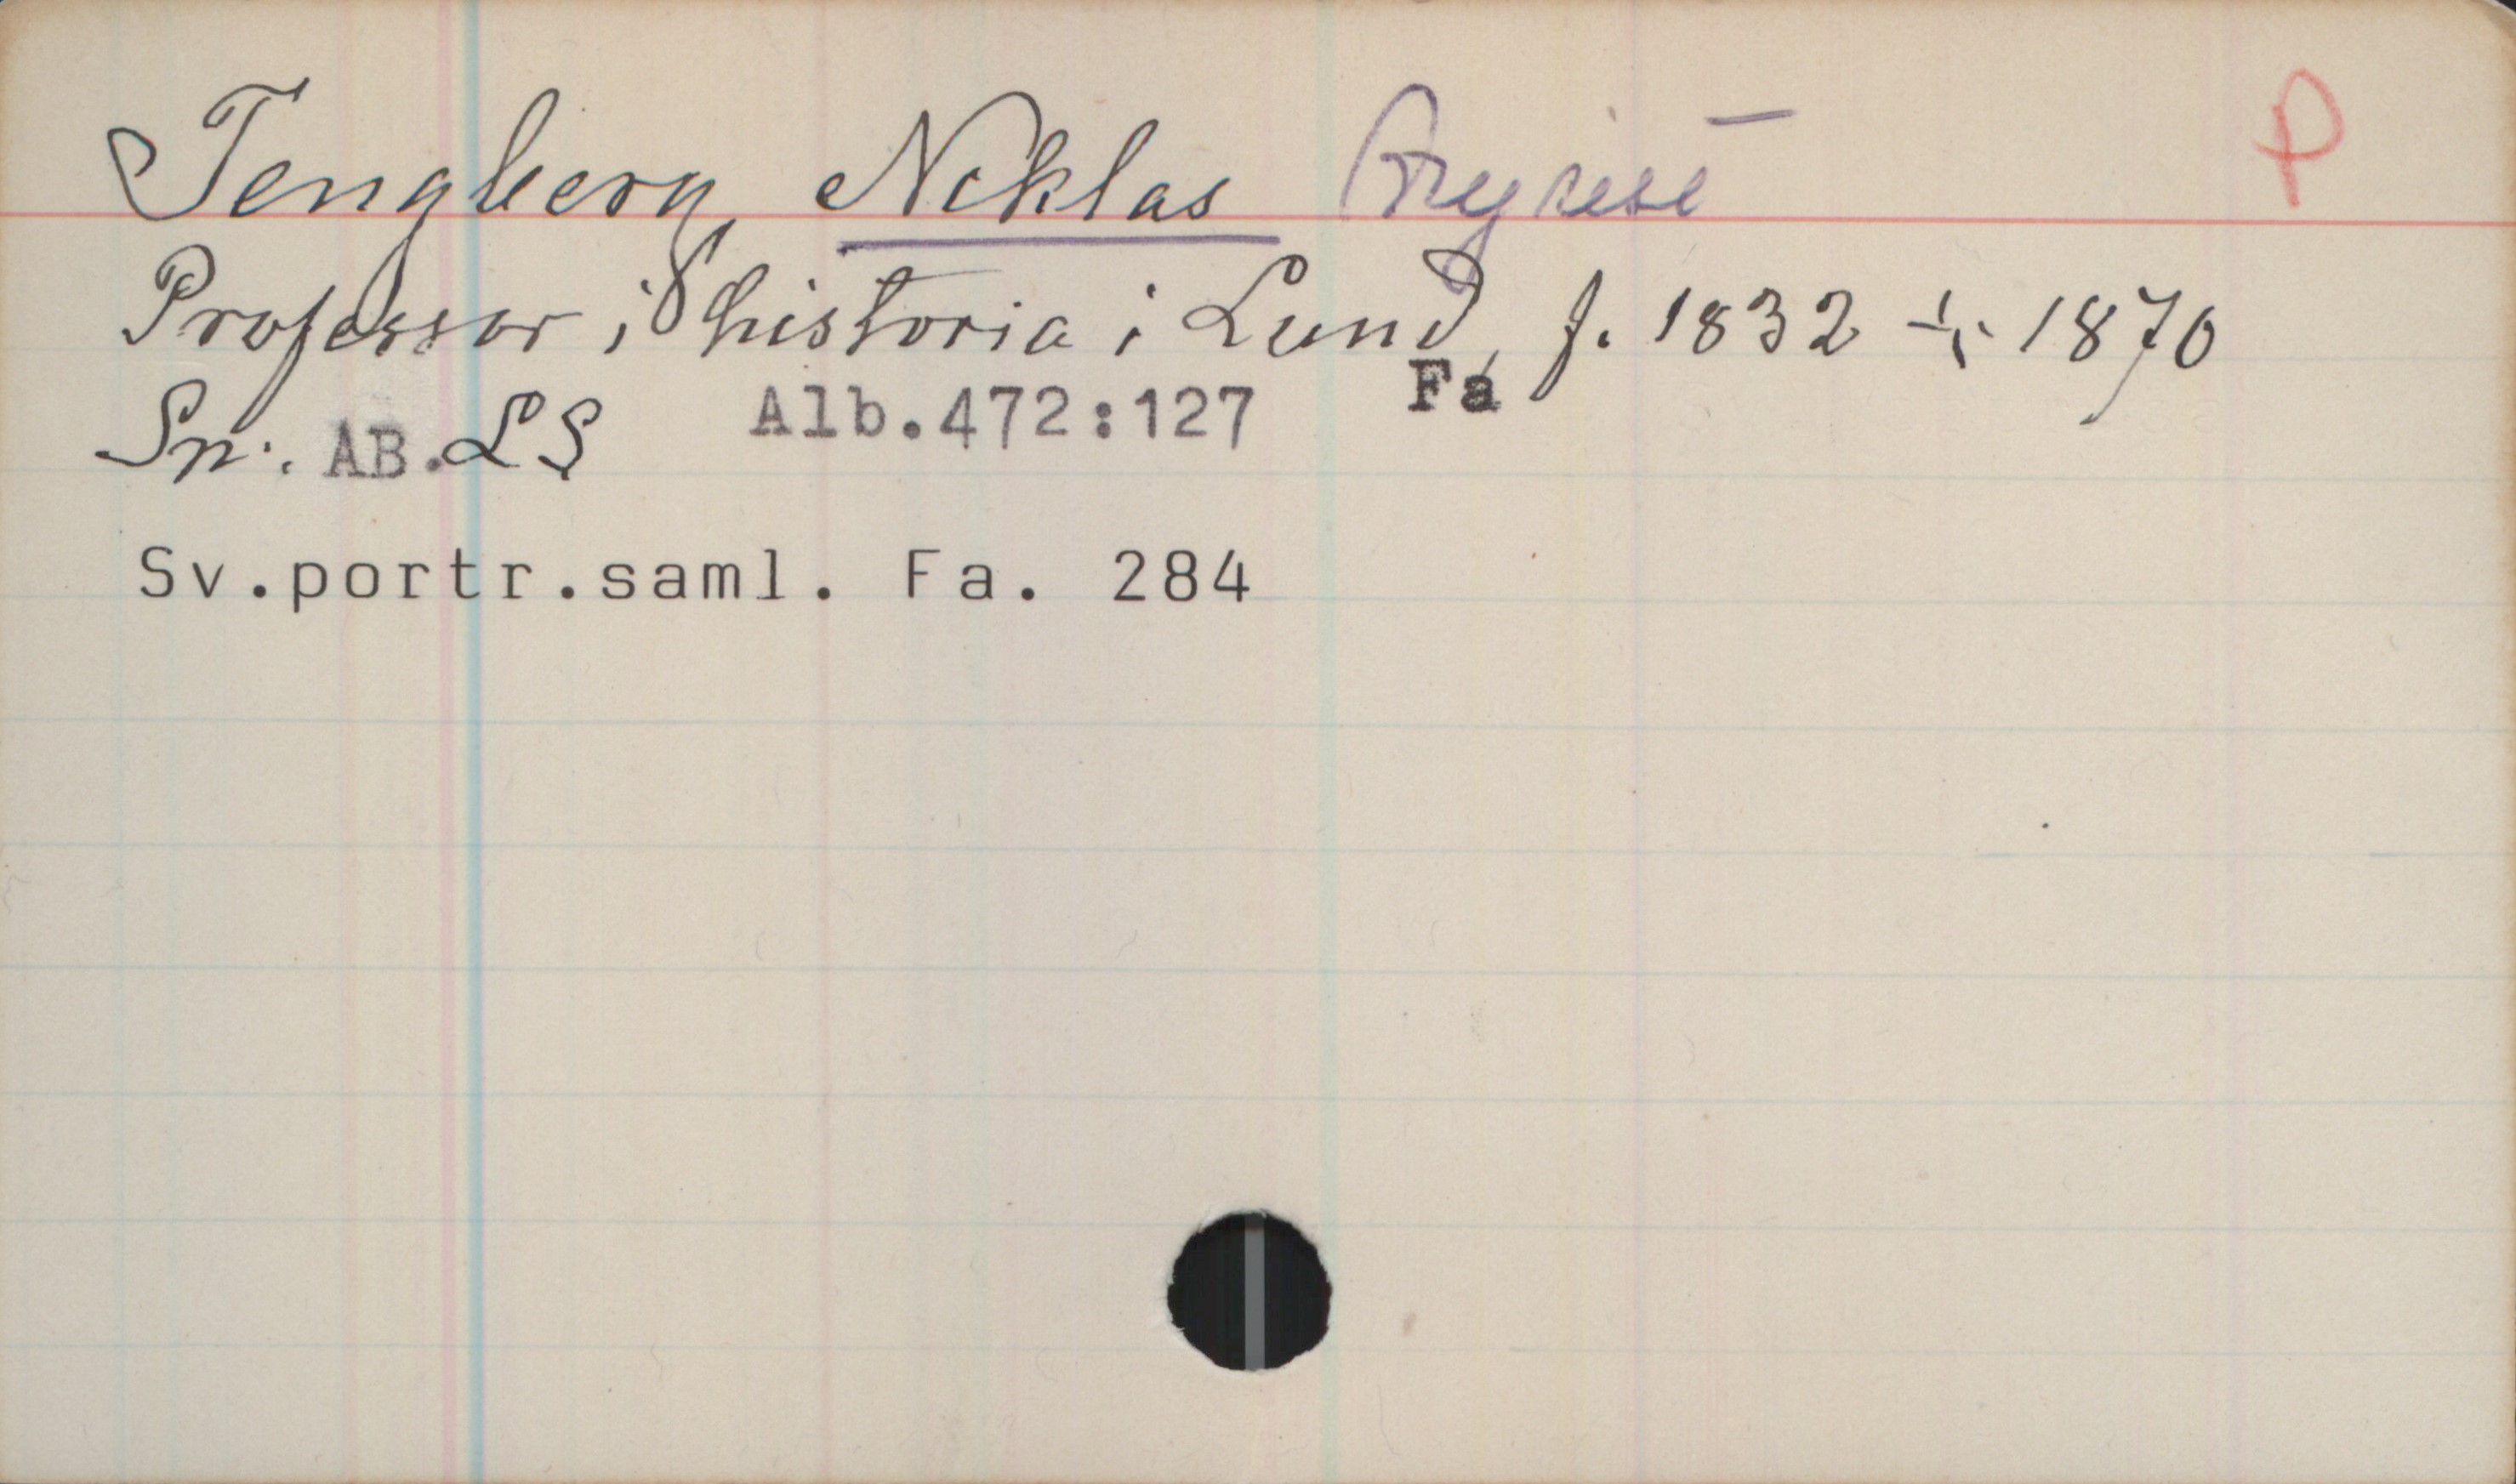 Tengberg, Niklas August P
Professor i historia i Lund, f. 1832 ÷ 1870
Sn. AB. LS Alb.472:127 Fa
Sv.portr.saml. Fa. 284